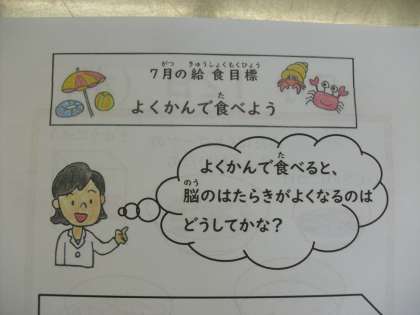 7月の給食目標
よくかんで食べよう
よくかんで食べると、
脳のはたらきがよくなるのは
どうしてかな?